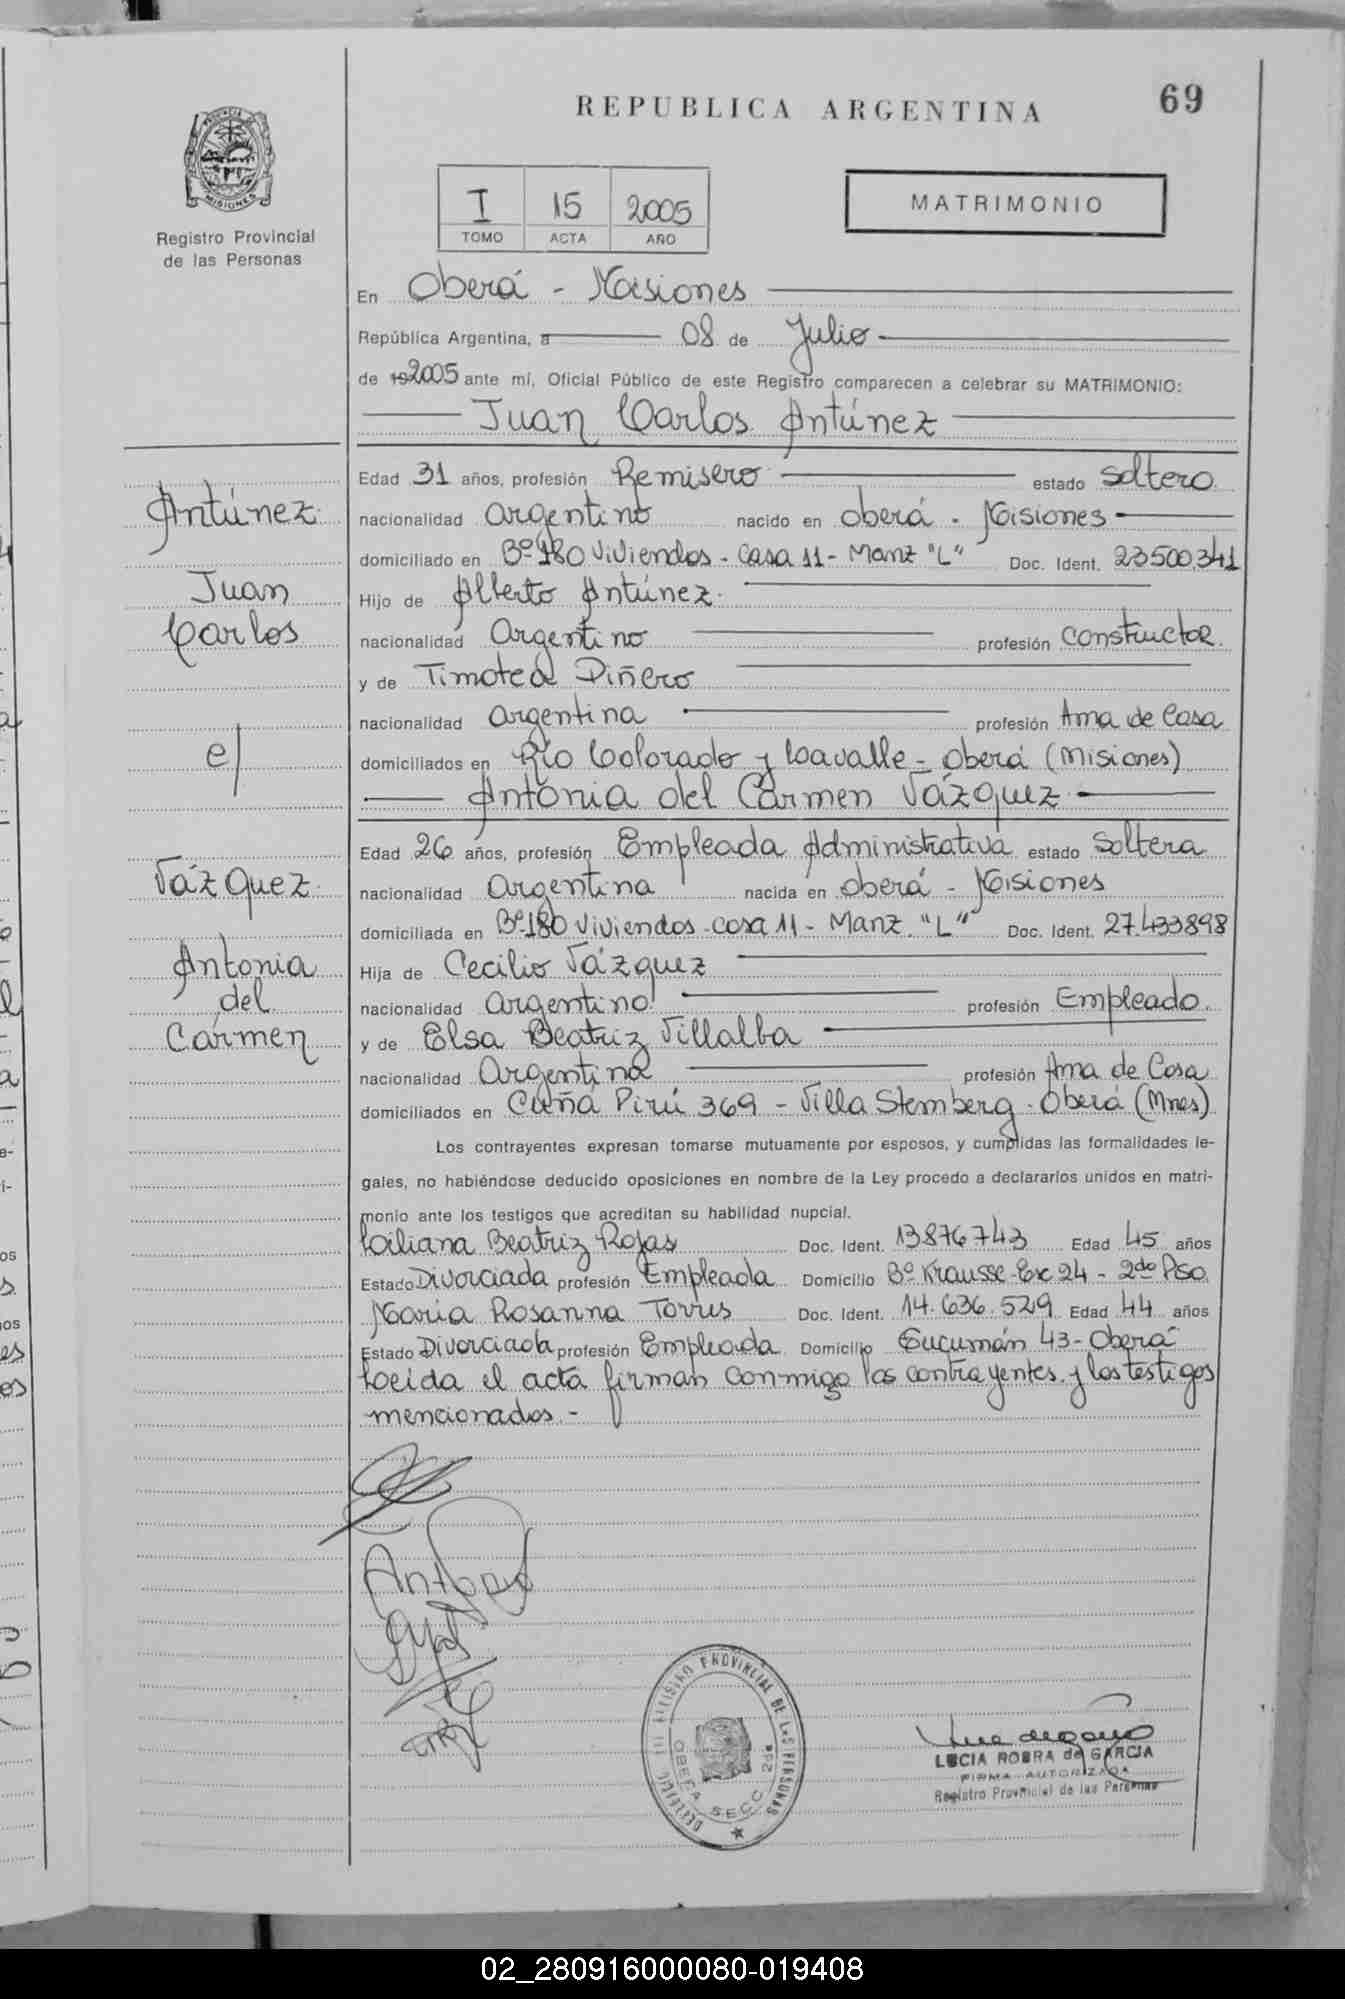 REPUBLICA ARGENTINA
69
PROVINCIA DE
MISIONES
Registro Provincial
de las Personas
I 15 2005
TOMO ACTA AÑO
MATRIMONIO
En Oberá - Misiones
República Argentina, a 08 de Julio
de 192005 ante mí, Oficial Público de este Registro comparecen a celebrar su MATRIMONIO:
Juan Carlos Antúnez
Edad 31 años, profesión Remisero estado Soltero
nacionalidad Argentino nacido en Oberá - Misiones
domiciliado en Bº 180 Viviendas - Casa 11 - Manz "L" Doc. Ident. 23500.341
Hijo de Alberto Antúnez
nacionalidad Argentino profesión Constructor
y de Timotea Diñero
nacionalidad Argentina profesión Ama de Casa
domiciliados en Río Colorado y Lavalle - Oberá (Misiones)
Antonia del Carmen Vázquez
Edad 26 años, profesión Empleada Administrativa estado Soltera
nacionalidad Argentina nacida en Oberá - Misiones
domiciliada en Bº 180 Viviendas - casa 11 - Manz. "L" Doc. Ident. 27.433898
Hija de Cecilio Vázquez
nacionalidad Argentino profesión Empleado
y de Elsa Beatriz Villalba
nacionalidad Argentina profesión Ama de Casa
domiciliados en Cuñá Pirú 369 - Villa Stemberg - Oberá (Mnes)
Los contrayentes expresan tomarse mutuamente por esposos, y cumplidas las formalidades le-
gales, no habiéndose deducido oposiciones en nombre de la Ley procedo a declararlos unidos en matri-
monio ante los testigos que acreditan su habilidad nupcial.
Liliana Beatriz Rojas Doc. Ident. 13876743 Edad 45 años
Estado Divorciada profesión Empleada Domicilio Bº Krausse - Esc 24 - 2do Piso
María Rosanna Torres Doc. Ident. 14.636.529 Edad 44 años
Estado Divorciada profesión Empleada Domicilio Tucumán 43 - Oberá
Leída el acta firman conmigo los contrayentes y los testigos
mencionados.-
Antúnez
Juan
Carlos
c/
Vázquez
Antonia
del
Carmen
PROVINCIAL DE LAS PERSONAS
OBERA SECC. 2da
LUCIA ROBRA de GARCIA
FIRMA AUTORIZADA
Registro Provincial de las Personas
02_280916000080-019408